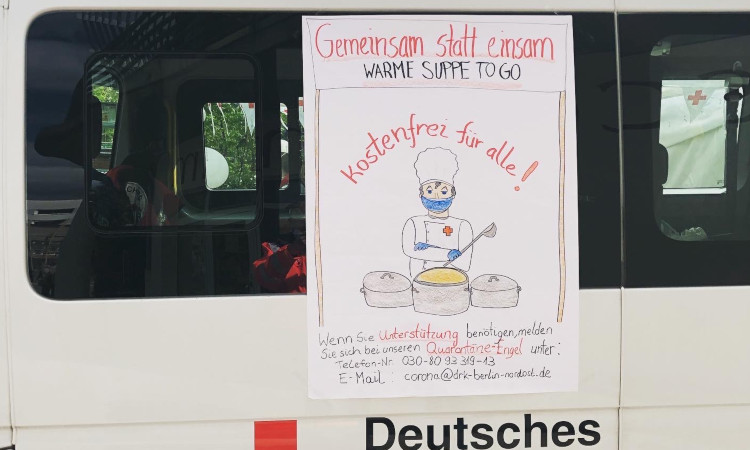 Gemeinsam statt einsam
WARME SUPPE TO GO
kostenfrei für alle!
Wenn Sie Unterstützung benötigen, melden
Sie sich bei unseren Quarantäne-Engel unter:
Telefon-Nr. 030-80 93 319-13
E-Mail: corona@drk-berlin-nordost.de
Deutsches